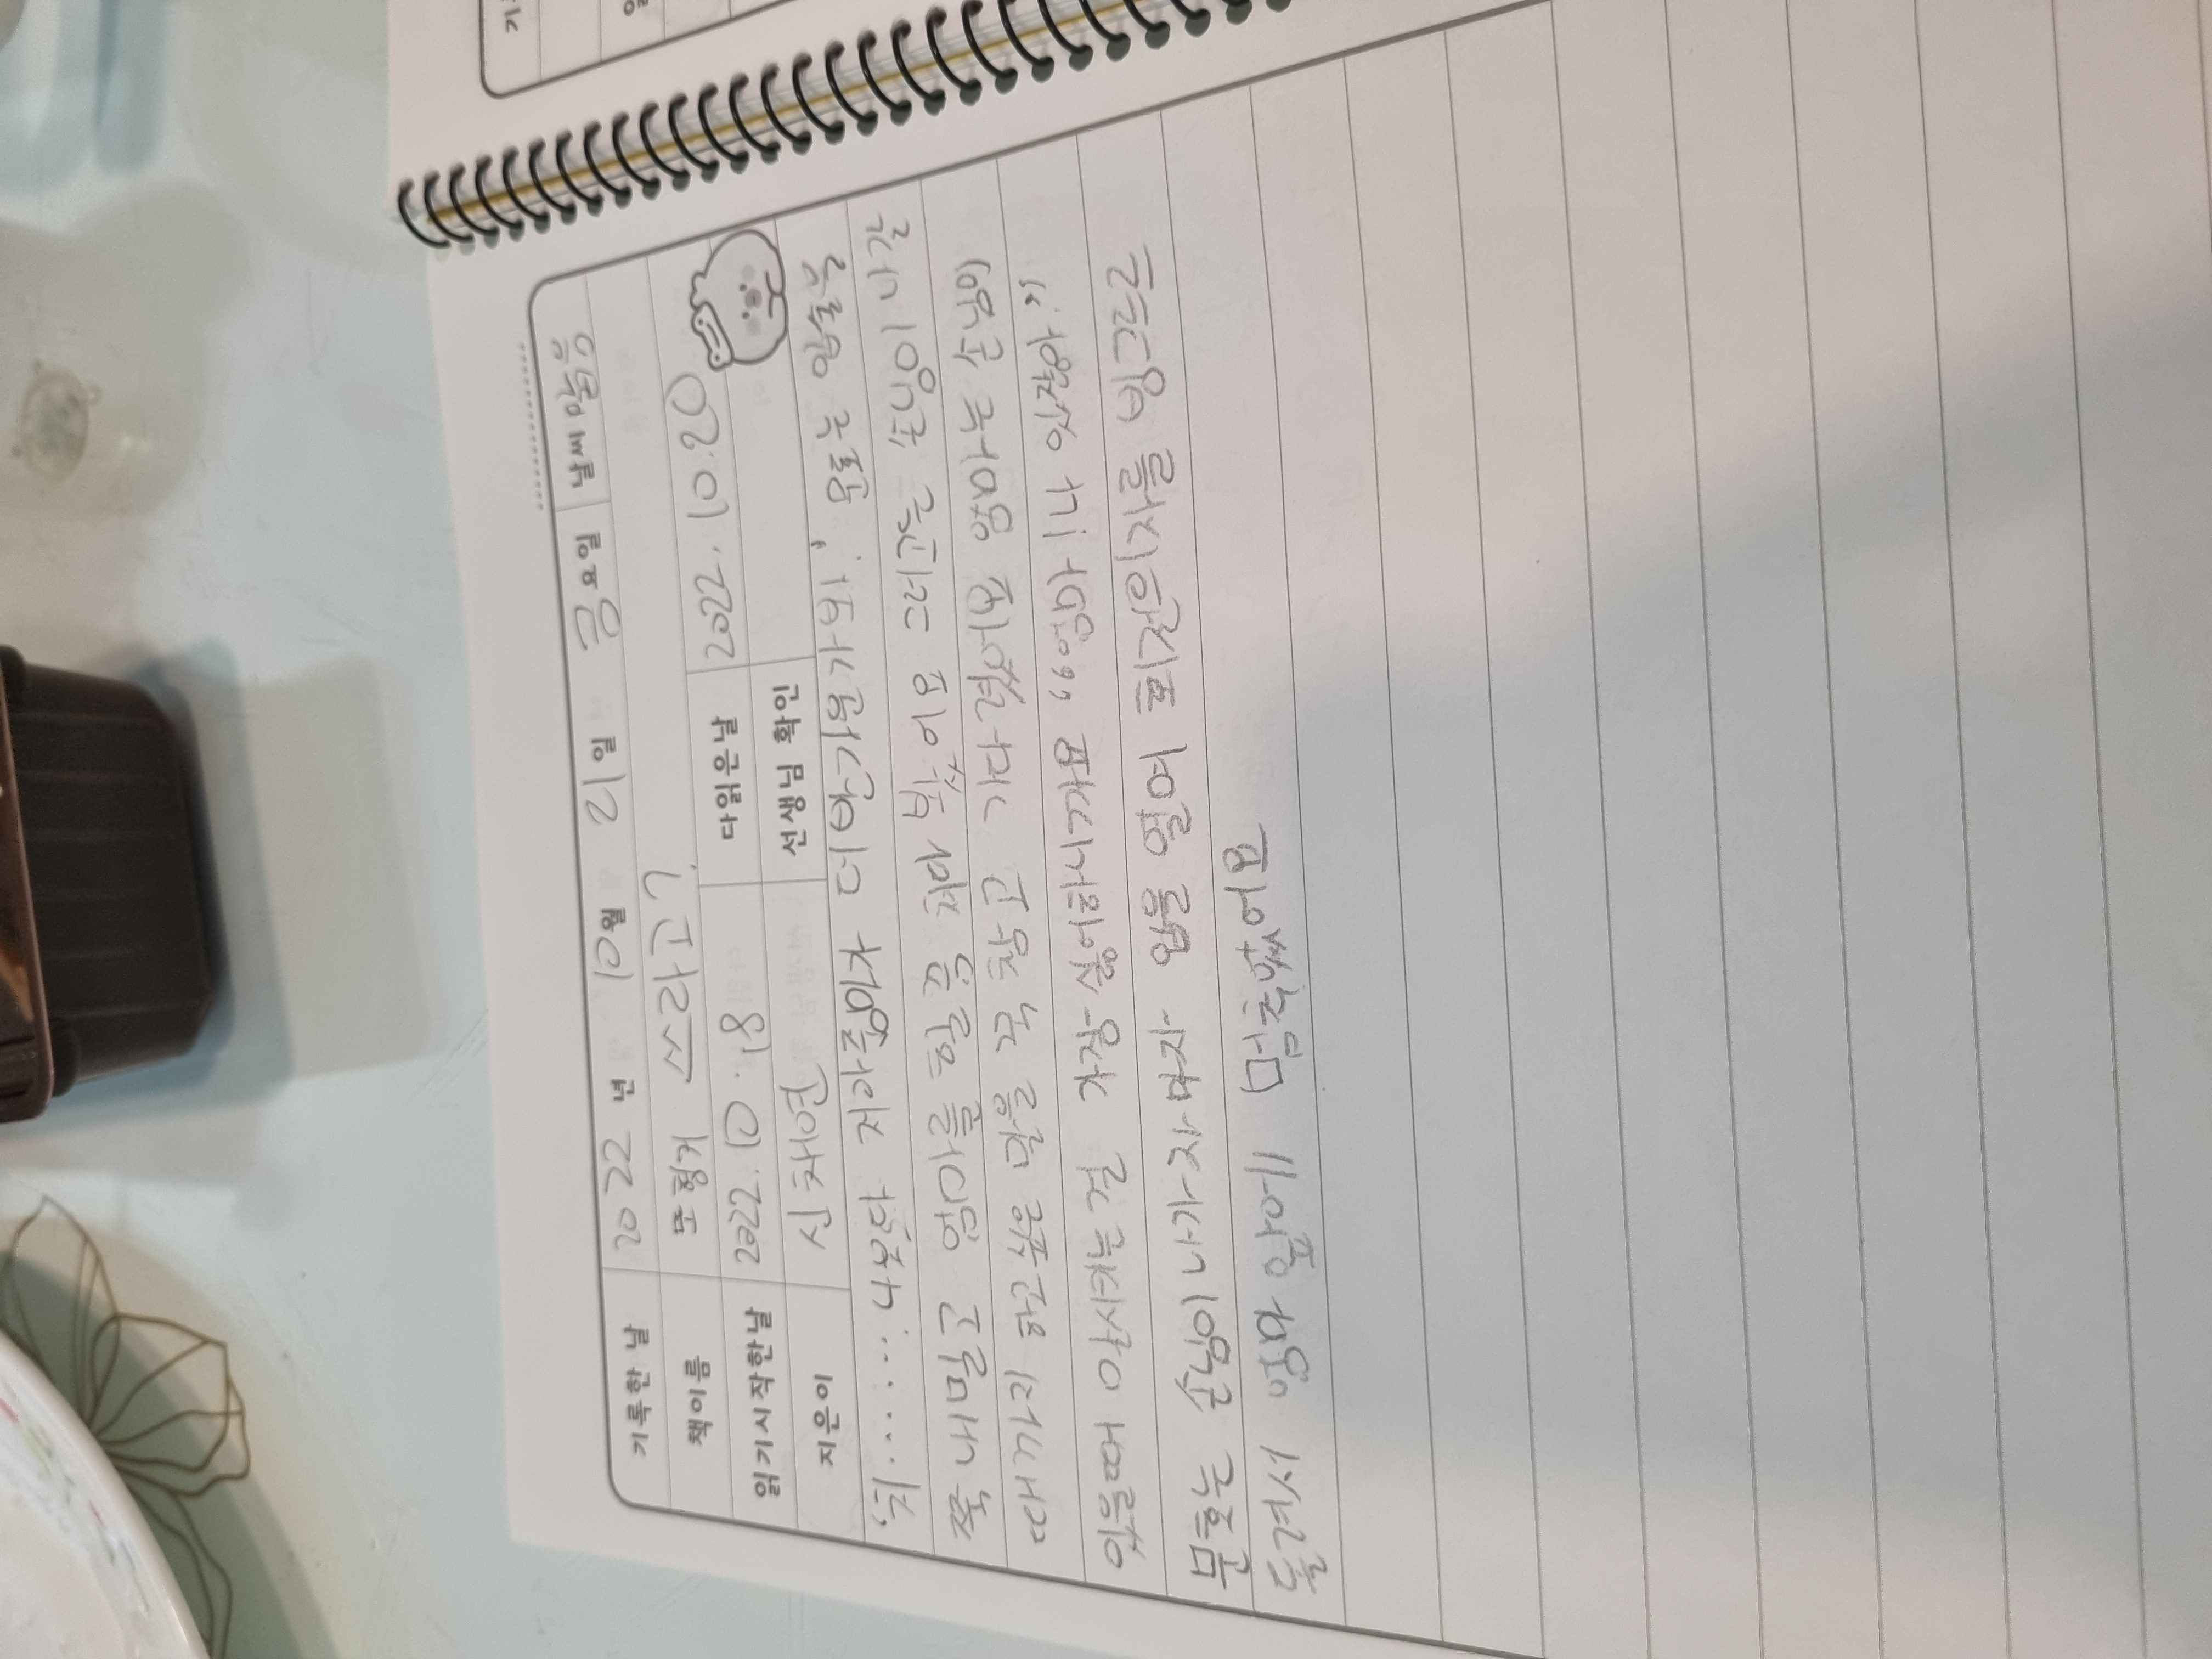 기록한 날 2022 년 10월 21일 금요일 날씨 맑음
책이름 또 형거 쓰라고?
읽기시작한날 2022. 10. 18 다읽은날 2022. 10. 20
지은이 신채연 선생님 확인
'치······. 나보다 저아줌마가 더 반가운가 봐!' 문호는 입술부
쭉 내밀고 엄마를 힐끔 쳐다 봤어요 그러고는 손님이 나갈
때까지 하고싶은 말을 꾹 참고 기다렸어요 엄마는 손님이
있을때 말시키는 걸 가장 싫어하니까요 "엄마! 나 있잖아."
문호는 손님이 나가자마자 입을 열여 회전의자를 빙그르르
돌려서 엄마 앞에 멈추었어요
기